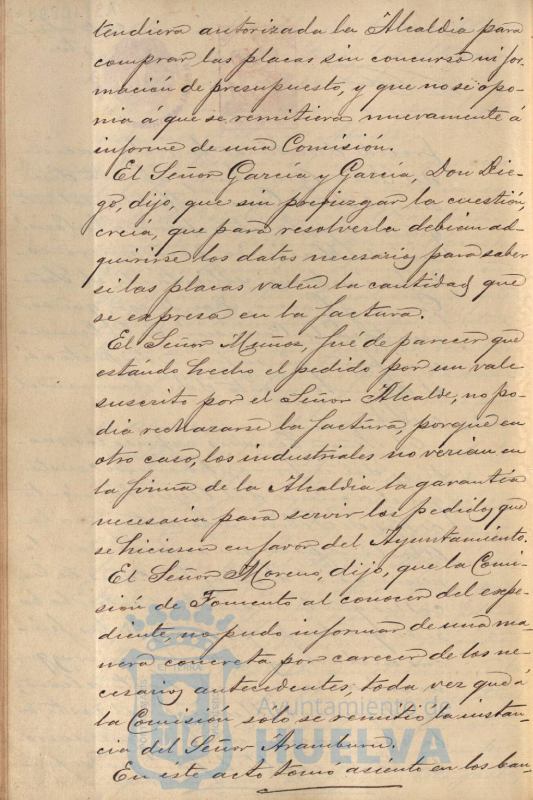 tendiera autorizada la Alcaldia para
comprar las placas sin concurso ni for-
mación de presupuesto, y que no se opo-
nia á que se remitiera nuevamente á
informe de una Comisión.
El Señor García y García, Don Die-
go, dijo, que sin prejuzgar la cuestión,
creía, que para resolverla debian ad-
quirirse los datos necesarios para saber
si las placas valen la cantidad que
se expresa en la factura.
El Señor Muñoz, fué de parecer que
estando hecho el pedido por un vale
suscrito por el Señor Alcalde, no po-
dia rechazarse la factura, porque en
otro caso, los industriales no verian en
la firma de la Alcaldia la garantía
necesaria para servir los pedidos que
se hiciesen en favor del Ayuntamiento.
El Señor Moreno, dijo, que la Comi-
sión de Fomento al conocer del expe-
diente, no pudo informar de una ma-
nera concreta por carecer de los ne-
cesarios antecedentes, toda vez que á
la Comisión, solo se remitió la instan-
cia del Señor Aramburu.
En este acto tomó asiento en los ban-
Ayuntamiento de
HUELVA